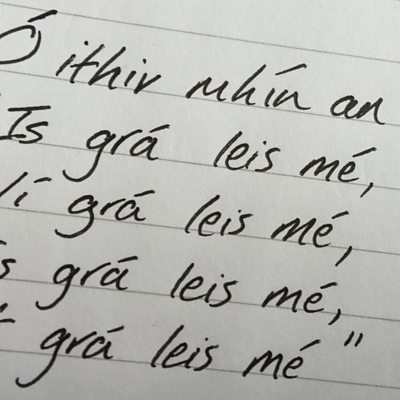 Ó ithir mhín an
Is grá leis mé,
grá leis mé,
grá leis mé,
grá leis mé"